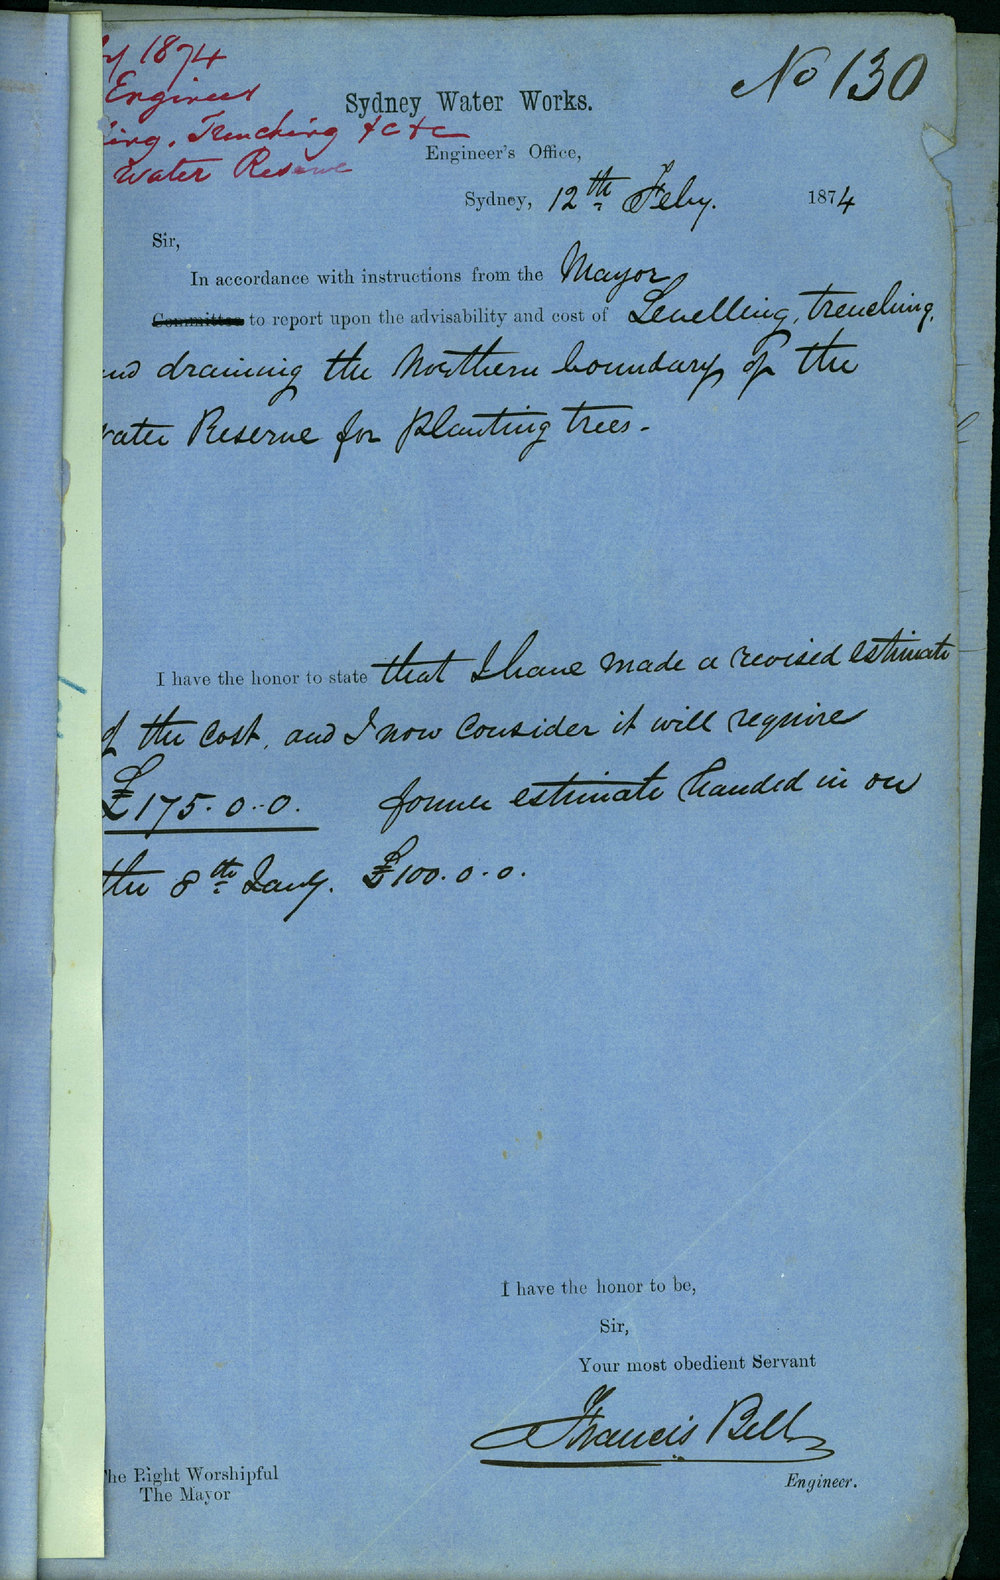 1874
Engineer
No 130
Sydney Water Works.
ing, Trenching &c &c
Engineer's Office,
Water Reserve
Sydney, 12th Feby. 1874
Sir,
In accordance with instructions from the Mayor
Committee to report upon the advisability and cost of Levelling, trenching,
and draining the Northern boundary of the
Water Reserve for planting trees.
I have the honor to state that I have made a revised estimate
of the cost, and I now consider it will require
£175.0.0. former estimate handed in on
the 8th Jany. £100.0.0.
I have the honor to be,
Sir,
Your most obedient Servant
Francis Bell
The Right Worshipful
Engineer.
The Mayor